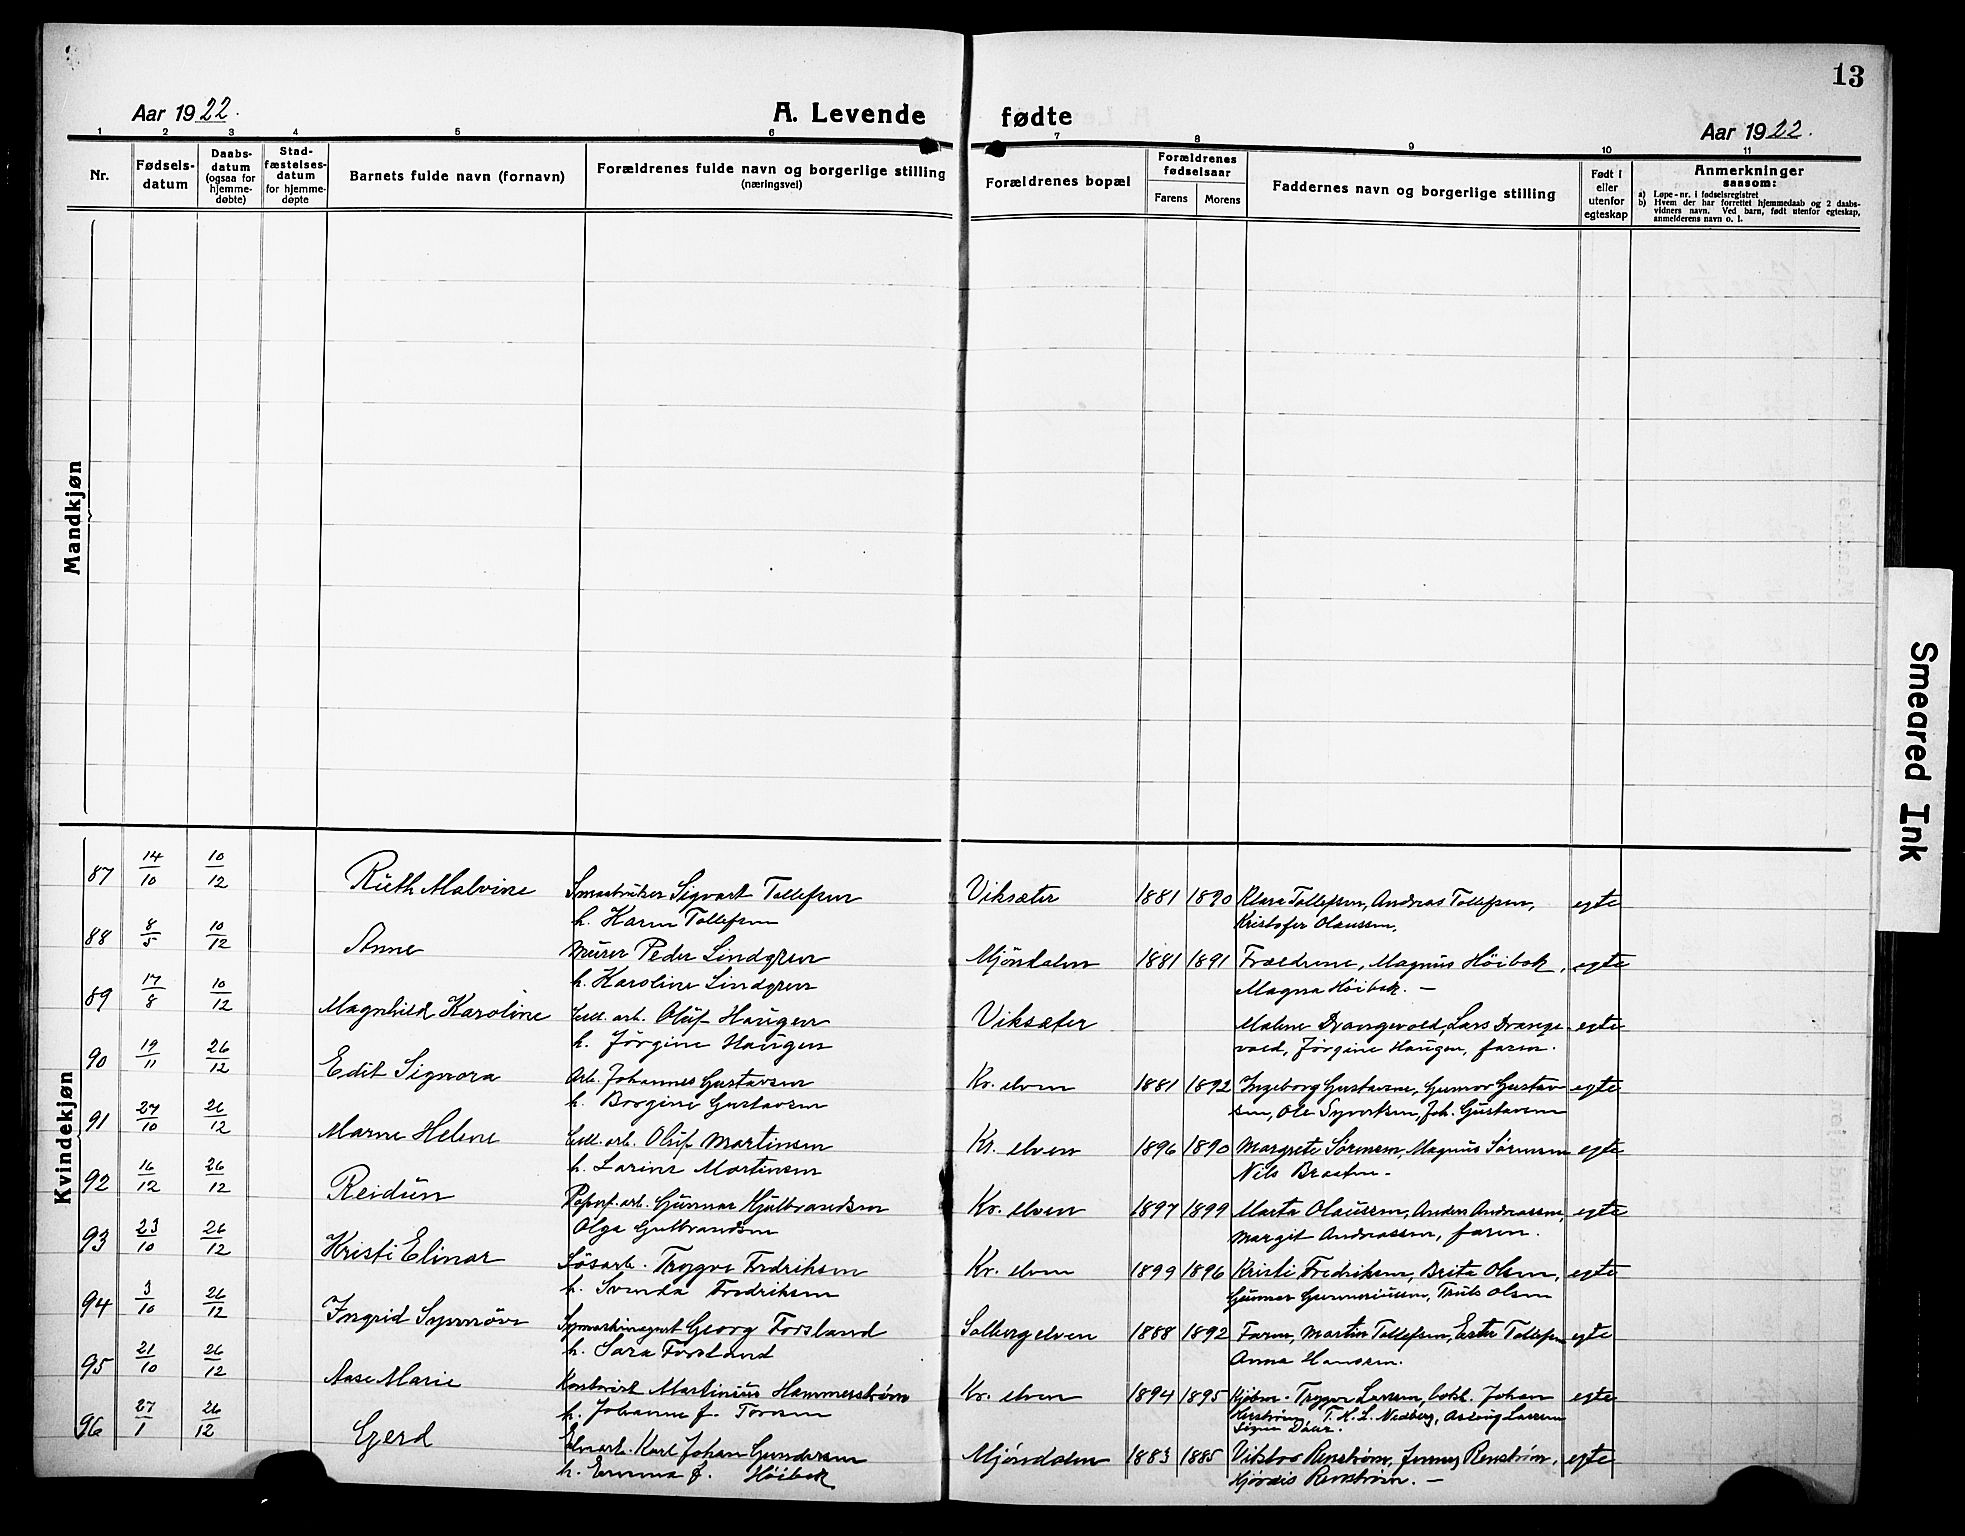 13
Aar 1922.
A. Levende fødte
Aar 1922.
1 2 3 4 5 6 7 8 9 10 11
Nr.
Fødsels-
datum
Daabs-
datum
(ogsaa for
hjemme-
døbte)
Stad-
fæstelses-
datum
for hjemme-
døpte
Barnets fulde navn (fornavn)
Forældrenes fulde navn og borgerlige stilling
(næringsvei)
Forældrenes bopæl
Forældrenes
fødselsaar
Farens Morens
Faddernes navn og borgerlige stilling
Født i
eller
utenfor
egteskap
Anmerkninger
saasom:
a) Løpe-nr. i fødselsregistret
b) Hvem der har forrettet hjemmedaab og 2 daabs-
vidners navn. Ved barn, født utenfor egteskap,
anmelderens navn o. l.
Mandkjøn
Kvindekjøn
87 14/10 10/12 Ruth Malvine Smaabruker Sigvart Tollefsen Viksæter 1881 1890 Klara Tollefsen, Andreas Tollefsen, egte
h. Karen Tollefsen Kristofer Olaussen.
88 8/5 10/12 Anne Murer Peder Lindgren Mjöndalen 1881 1891 Frældrene, Magnus Höibak, egte
h. Karoline Lindgren Magna Höibak. —
89 17/8 10/12 Magnhild Karoline Cell. arb. Oluf Haugen Viksæter Malene Drangevold, Lars Drange- egte
h. Jörgine Haugen vold, Jörgine Haugen, faren.
90 19/11 26/12 Edit Signora Arb. Johannes Gustavsen Kr. elven 1881 1892 Ingeborg Gustavsen, Gunvor Gustav- egte
h. Borgine Gustavsen sen, Ole Syvertsen, Joh. Gustavsen
91 27/10 26/12 Marne Helene Cell. arb. Oluf Martinsen Kr. elven 1896 1890 Margrete Sørensen, Magnus Sørensen egte
h. Larine Martinsen Nils Braaten.
92 16/12 26/12 Reidun Papirf. arb. Gunnar Gulbrandsen Kr. elven 1897 1899 Marta Olaussen, Anders Andreassen, egte
Olga Gulbrandsen Margit Andreassen, faren.
93 23/10 26/12 Kristi Elinor Lösarb. Trygve Fredriksen Kr. elven 1899 1896 Kristi Fredriksen, Brita Olsen, egte
h. Svenda Fredriksen Gunnar Gunneriussen, Truls Olsen
94 3/10 26/12 Ingrid Synnöve Georg Forsland Solbergelven 1888 1892 Faren, Martin Tollefsen, Ester Tollefsen egte
h. Sara Forsland Anna Hanssen.
95 21/10 26/12 Aase Marie Kontorist Martinius Hammerstrøm Kr. elven 1894 1895 Kjöbm. Trygve Larsen, bokh. Johan egte
h. Johanne f. T. H. L. Nedberg, Aslaug Larsen
Signe
96 27/1 26/12 Gerd Elvearb. Karl Johan Gundersen Mjöndalen 1883 1885 Viktor Renström, Jenny Renström, egte
h. Emma f. Höibak Hjördis Renström. —
Smeared Ink